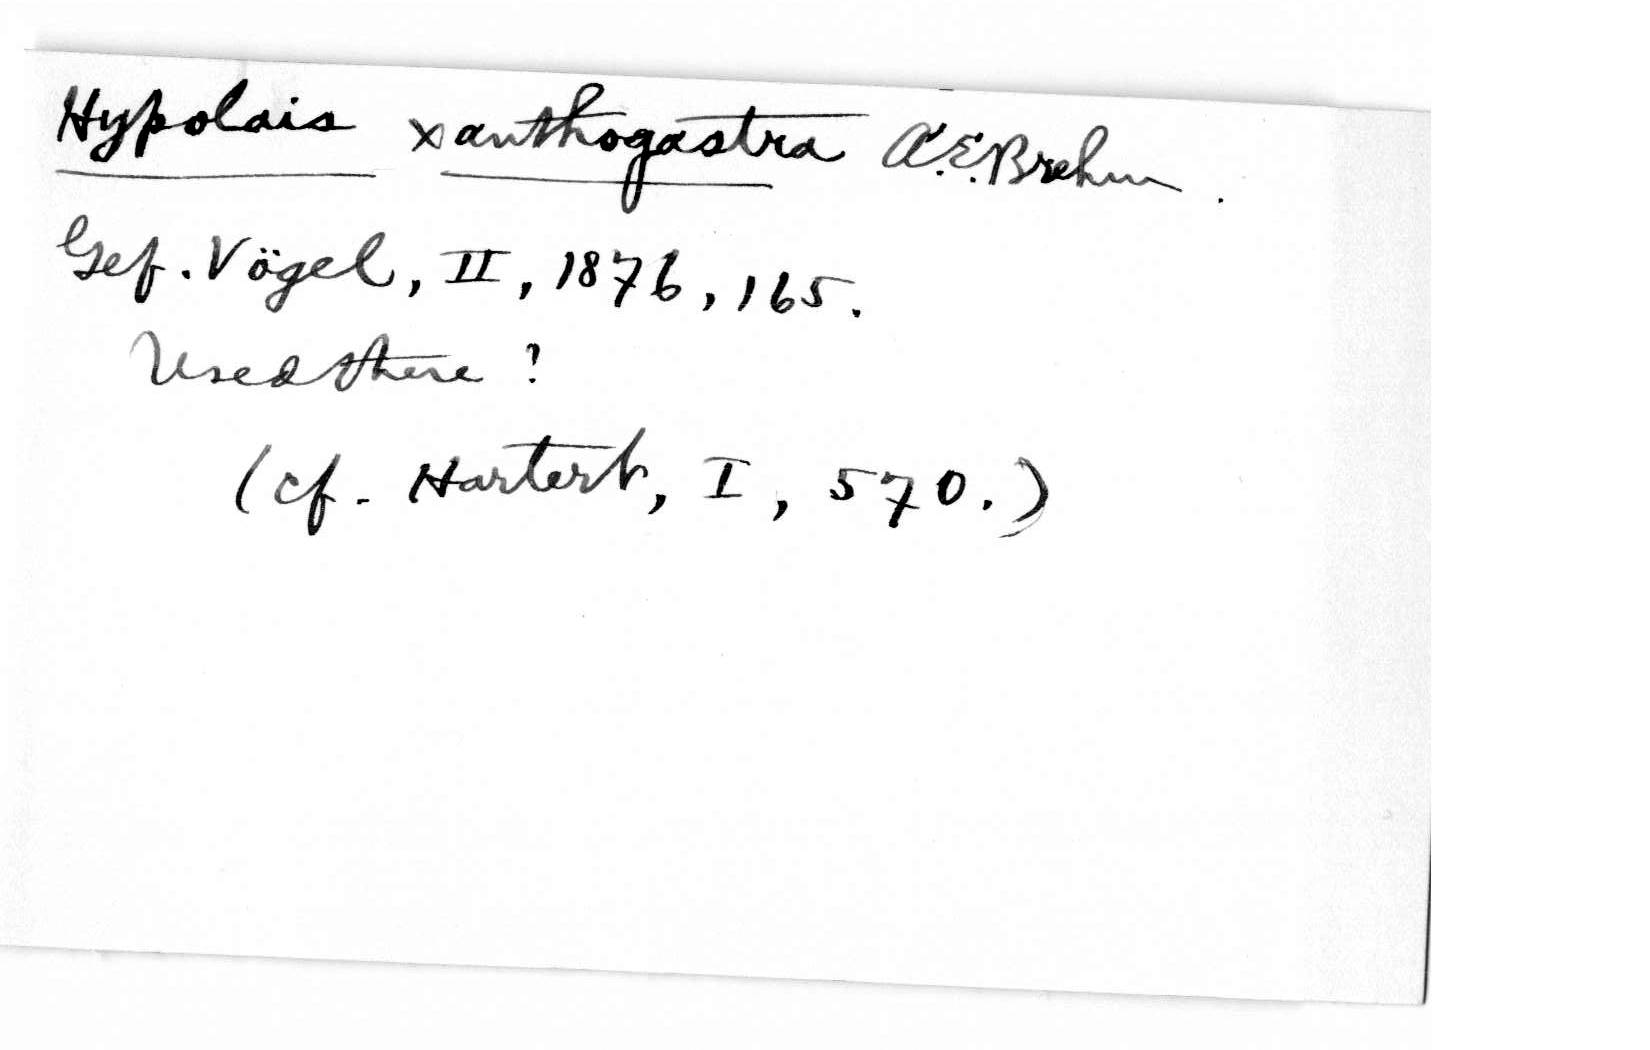 Hypolais xanthogastra A.E.Brehm.
Gef. Vögel, II, 1876, 165.
Used there?
(cf. Hartert, I, 570.)